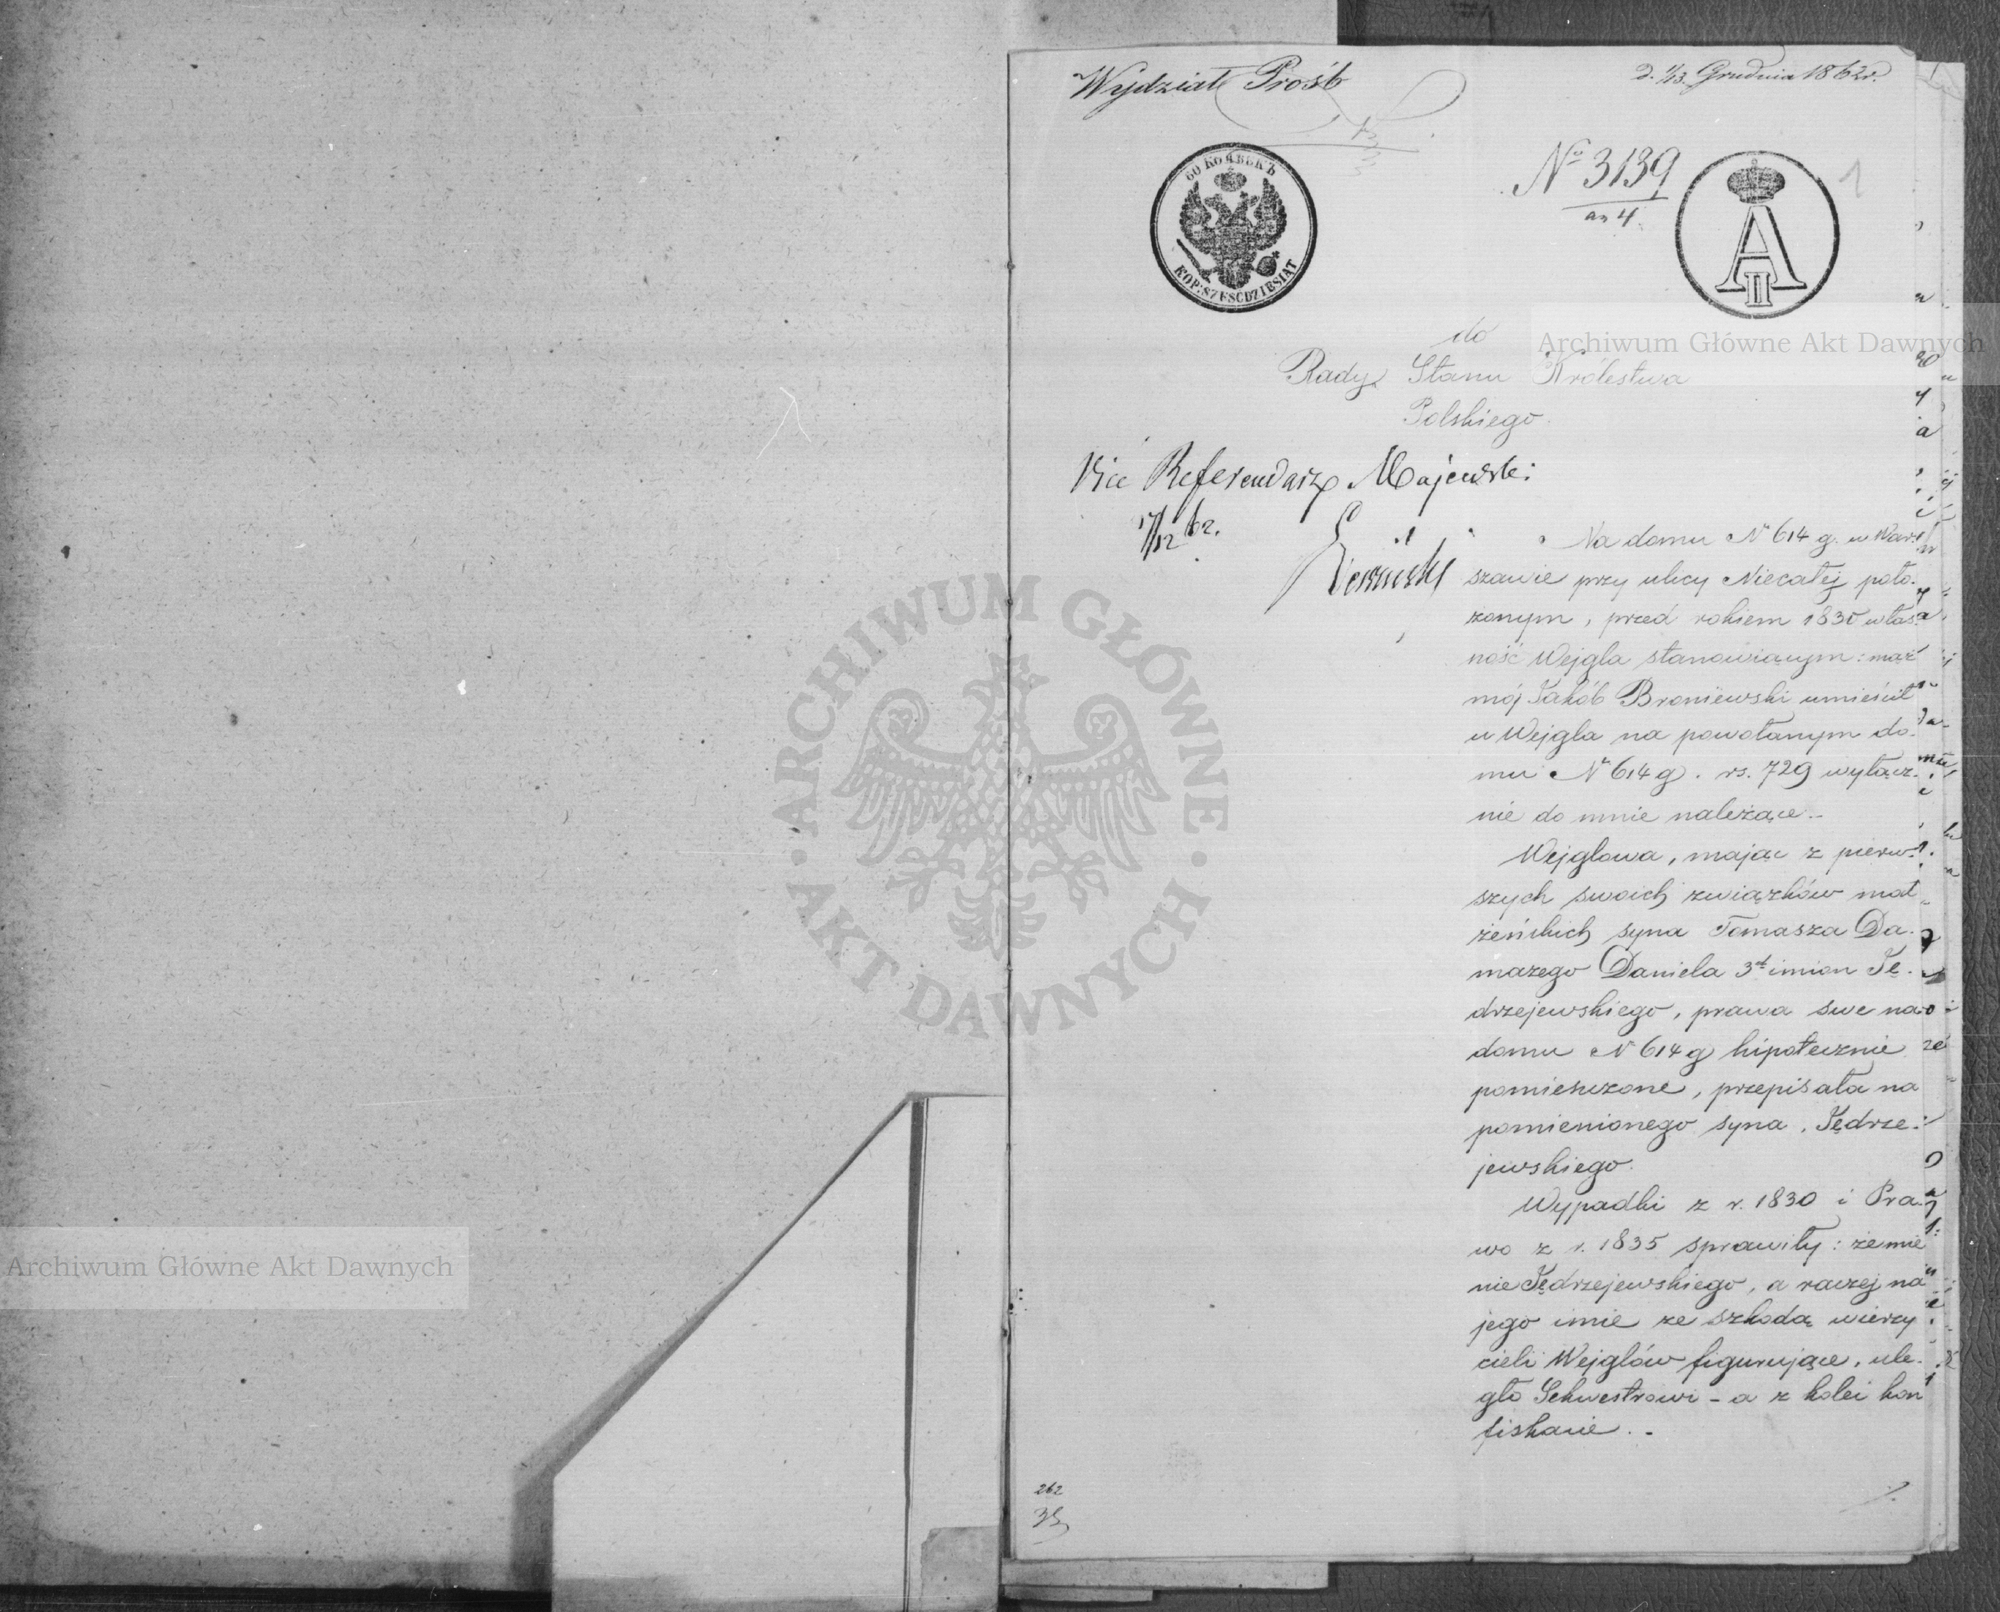 Wydział Prośb
d. 1/13. Grudnia 1862 r.
1
60 КОПѢЕКЪ
KOP: SZEŚĆDZIESIĄT
No 3139
A II
do
Rady Stanu Królestwa
Polskiego.
Vice Referendarz Majewski
17/12 62.
Na domu N 614 g. w War-
szawie przy ulicy Niecałej poło-
żonym, przed rokiem 1830 włas-
ność Wejgla stanowiącym: mąż
mój Jakób Broniewski umieścił
u Wejgla na powołanym do-
mu N 614 g. rs. 729 wyłącz-
nie do mnie należące.
Wejglowa, mając z pierw-
szych swoich związków mał-
żeńskich syna Tomasza Da-
mazego Daniela 3ch imion Ję-
drzejewskiego, prawa swe na
domu N 614 g hipotecznie
pomieszczone, przepisała na
pomienionego syna, Jędrze-
jewskiego.
Wypadki z r. 1830 i Pra-
wo z r. 1835 sprawiły: że mie
nie Jędrzejewskiego, a raczej na
jego imie ze szkodą wierzy
cieli Wejglów figurujące, ule-
gło Sekwestrowi - a z kolei kon
fiskacie. -
262
Archiwum Główne Akt Dawnych
Archiwum Główne Akt Dawnych
ARCHIWUM GŁÓWNE
· AKT DAWNYCH ·